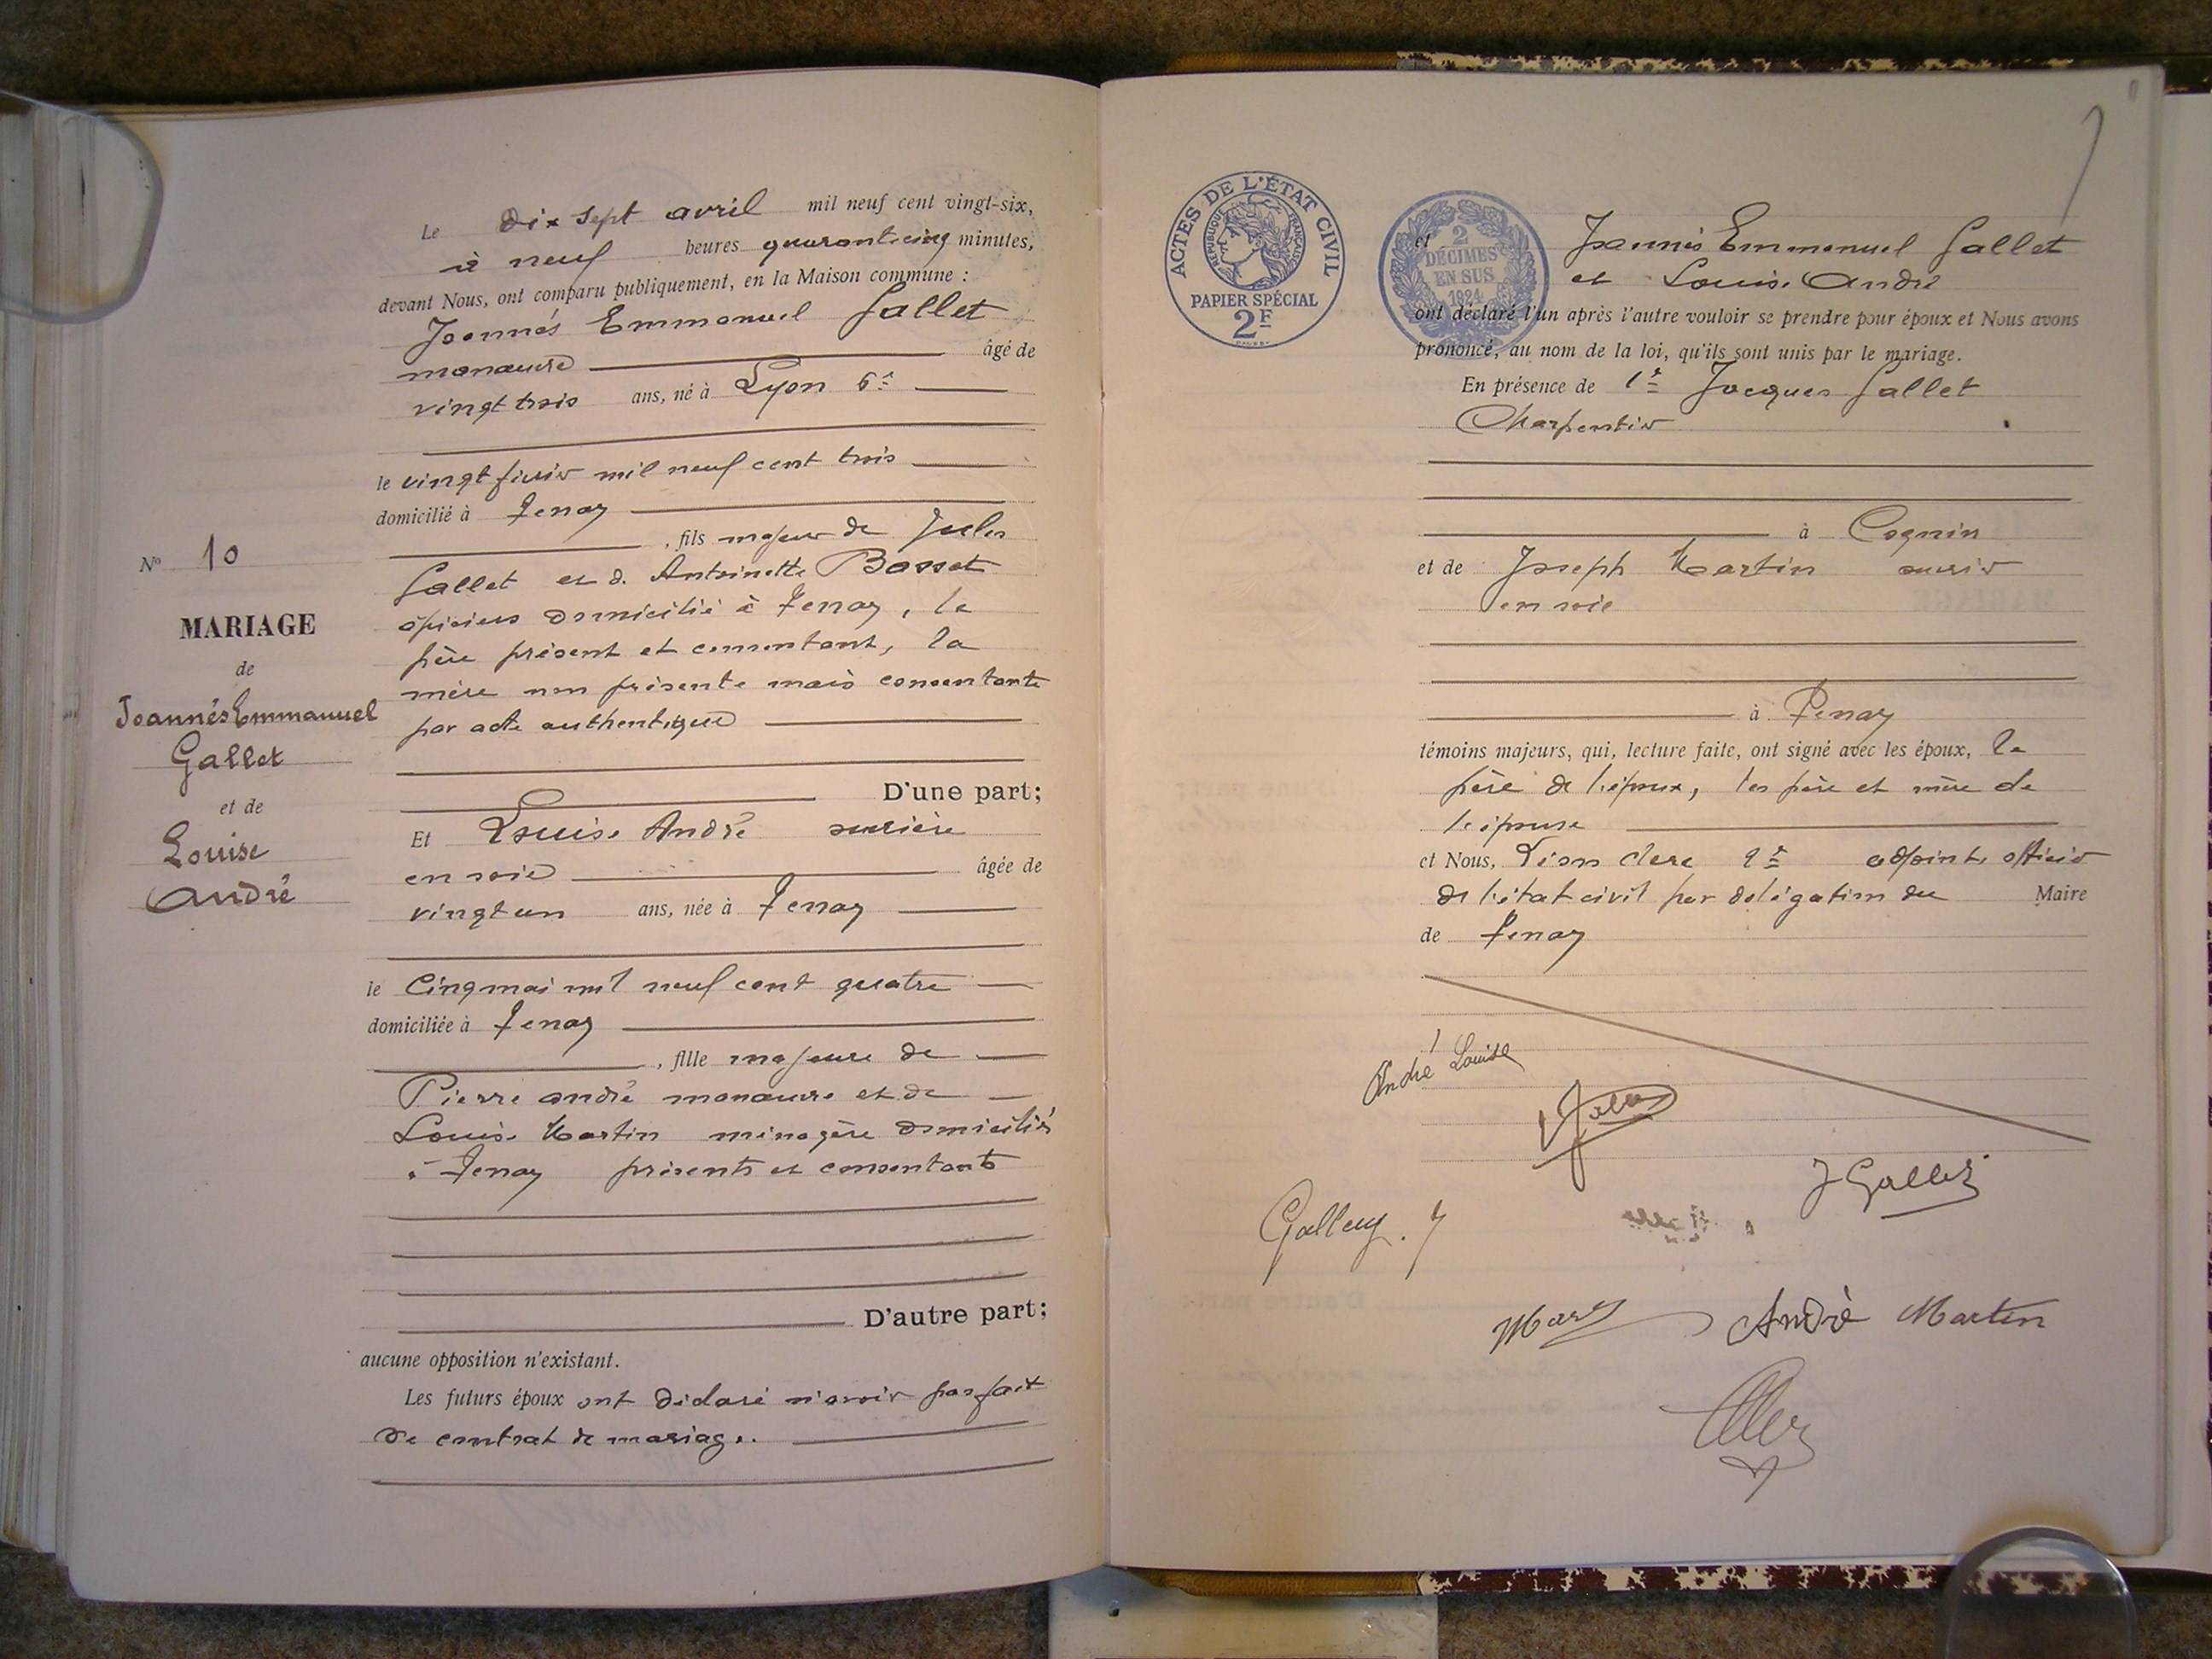 Le dix sept avril mil neuf cent vingt-six,
à neuf heures quarante cinq minutes,
devant Nous, ont comparu publiquement, en la Maison commune :
Joannés Emmanuel Gallet
manœuvre âgé de
vingt trois ans, né à Lyon 6e
le vingt février mil neuf cent trois
domicilié à Tenay
, fils majeur de Jules
Gallet et de Antoinette Basset
épiciers domicilié à Tenay, le
père présent et consentant, la
mère non présente mais consentante
par acte authentique
D'une part;
Et Louise André ouvrière
en soie âgée de
vingt un ans, née à Tenay
le cinq mai mil neuf cent quatre
domiciliée à Tenay
, fille majeure de
Pierre André manœuvre et de
Louise Martin ménagère domiciliés
à Tenay présents et consentants
D'autre part;
aucune opposition n'existant.
Les futurs époux ont déclaré n'avoir pas fait
de contrat de mariage.
No 10
MARIAGE
de
Joannés Emmanuel
Gallet
et de
Louise
André
ACTES DE L'ÉTAT CIVIL
RÉPUBLIQUE FRANÇAISE
PAPIER SPÉCIAL
2F
2
DÉCIMES
EN SUS
1924
et Joannés Emmanuel Gallet
et Louise André
ont déclaré l'un après l'autre vouloir se prendre pour époux et Nous avons
prononcé, au nom de la loi, qu'ils sont unis par le mariage.
En présence de 1° Jacques Gallet
Charpentier
à Cognin
et de Joseph Martin ouvrier
en soie
à Tenay
témoins majeurs, qui, lecture faite, ont signé avec les époux, le
père de l'époux, les père et mère de
l'épouse
et Nous, Léon Clerc adjoint, officier
de l'état civil par délégation du Maire
de Tenay
André Louise
J Gallet
André Martin